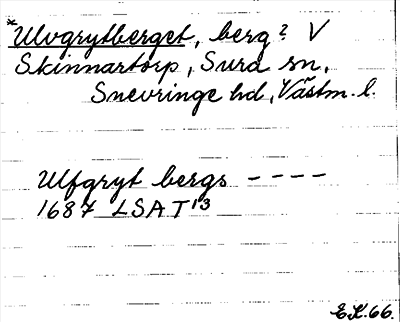 *Ulvgrytberget, berg? V
Skinnartorp, Sura sn,
Snevringe hd, Västm. l.
Ulfgryt bergs ----
1687 LSAT 13
E.K. 66.